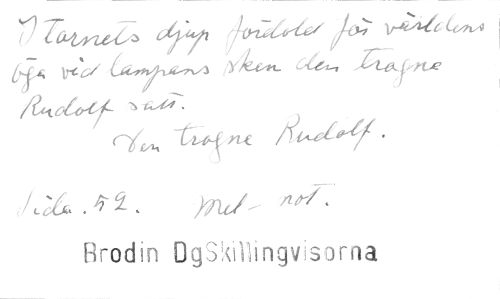 I tornets djup fördold för världens
öga vid lampans sken den trogne
Rudolf satt.
Den trogne Rudolf.
Sida. 52. Mel - not.
Brodin DgSkillingvisorna